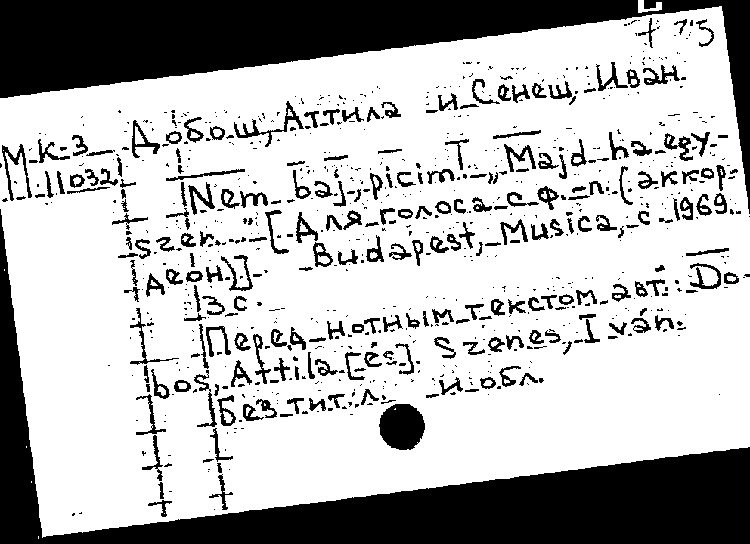 + 75
Добош, Аттила и Сенеш, Иван.
М К-3
11032
Nem baj, picim! „Majd ha egy-
szer..." [Для голоса с ф.-п. (аккор-
деон)]. Budapest, Musica, с 1969.
3 с.
Перед нотным текстом авт.: Do-
bos, Attila [és] Szenes, Iván.
Без тит. л. и обл.